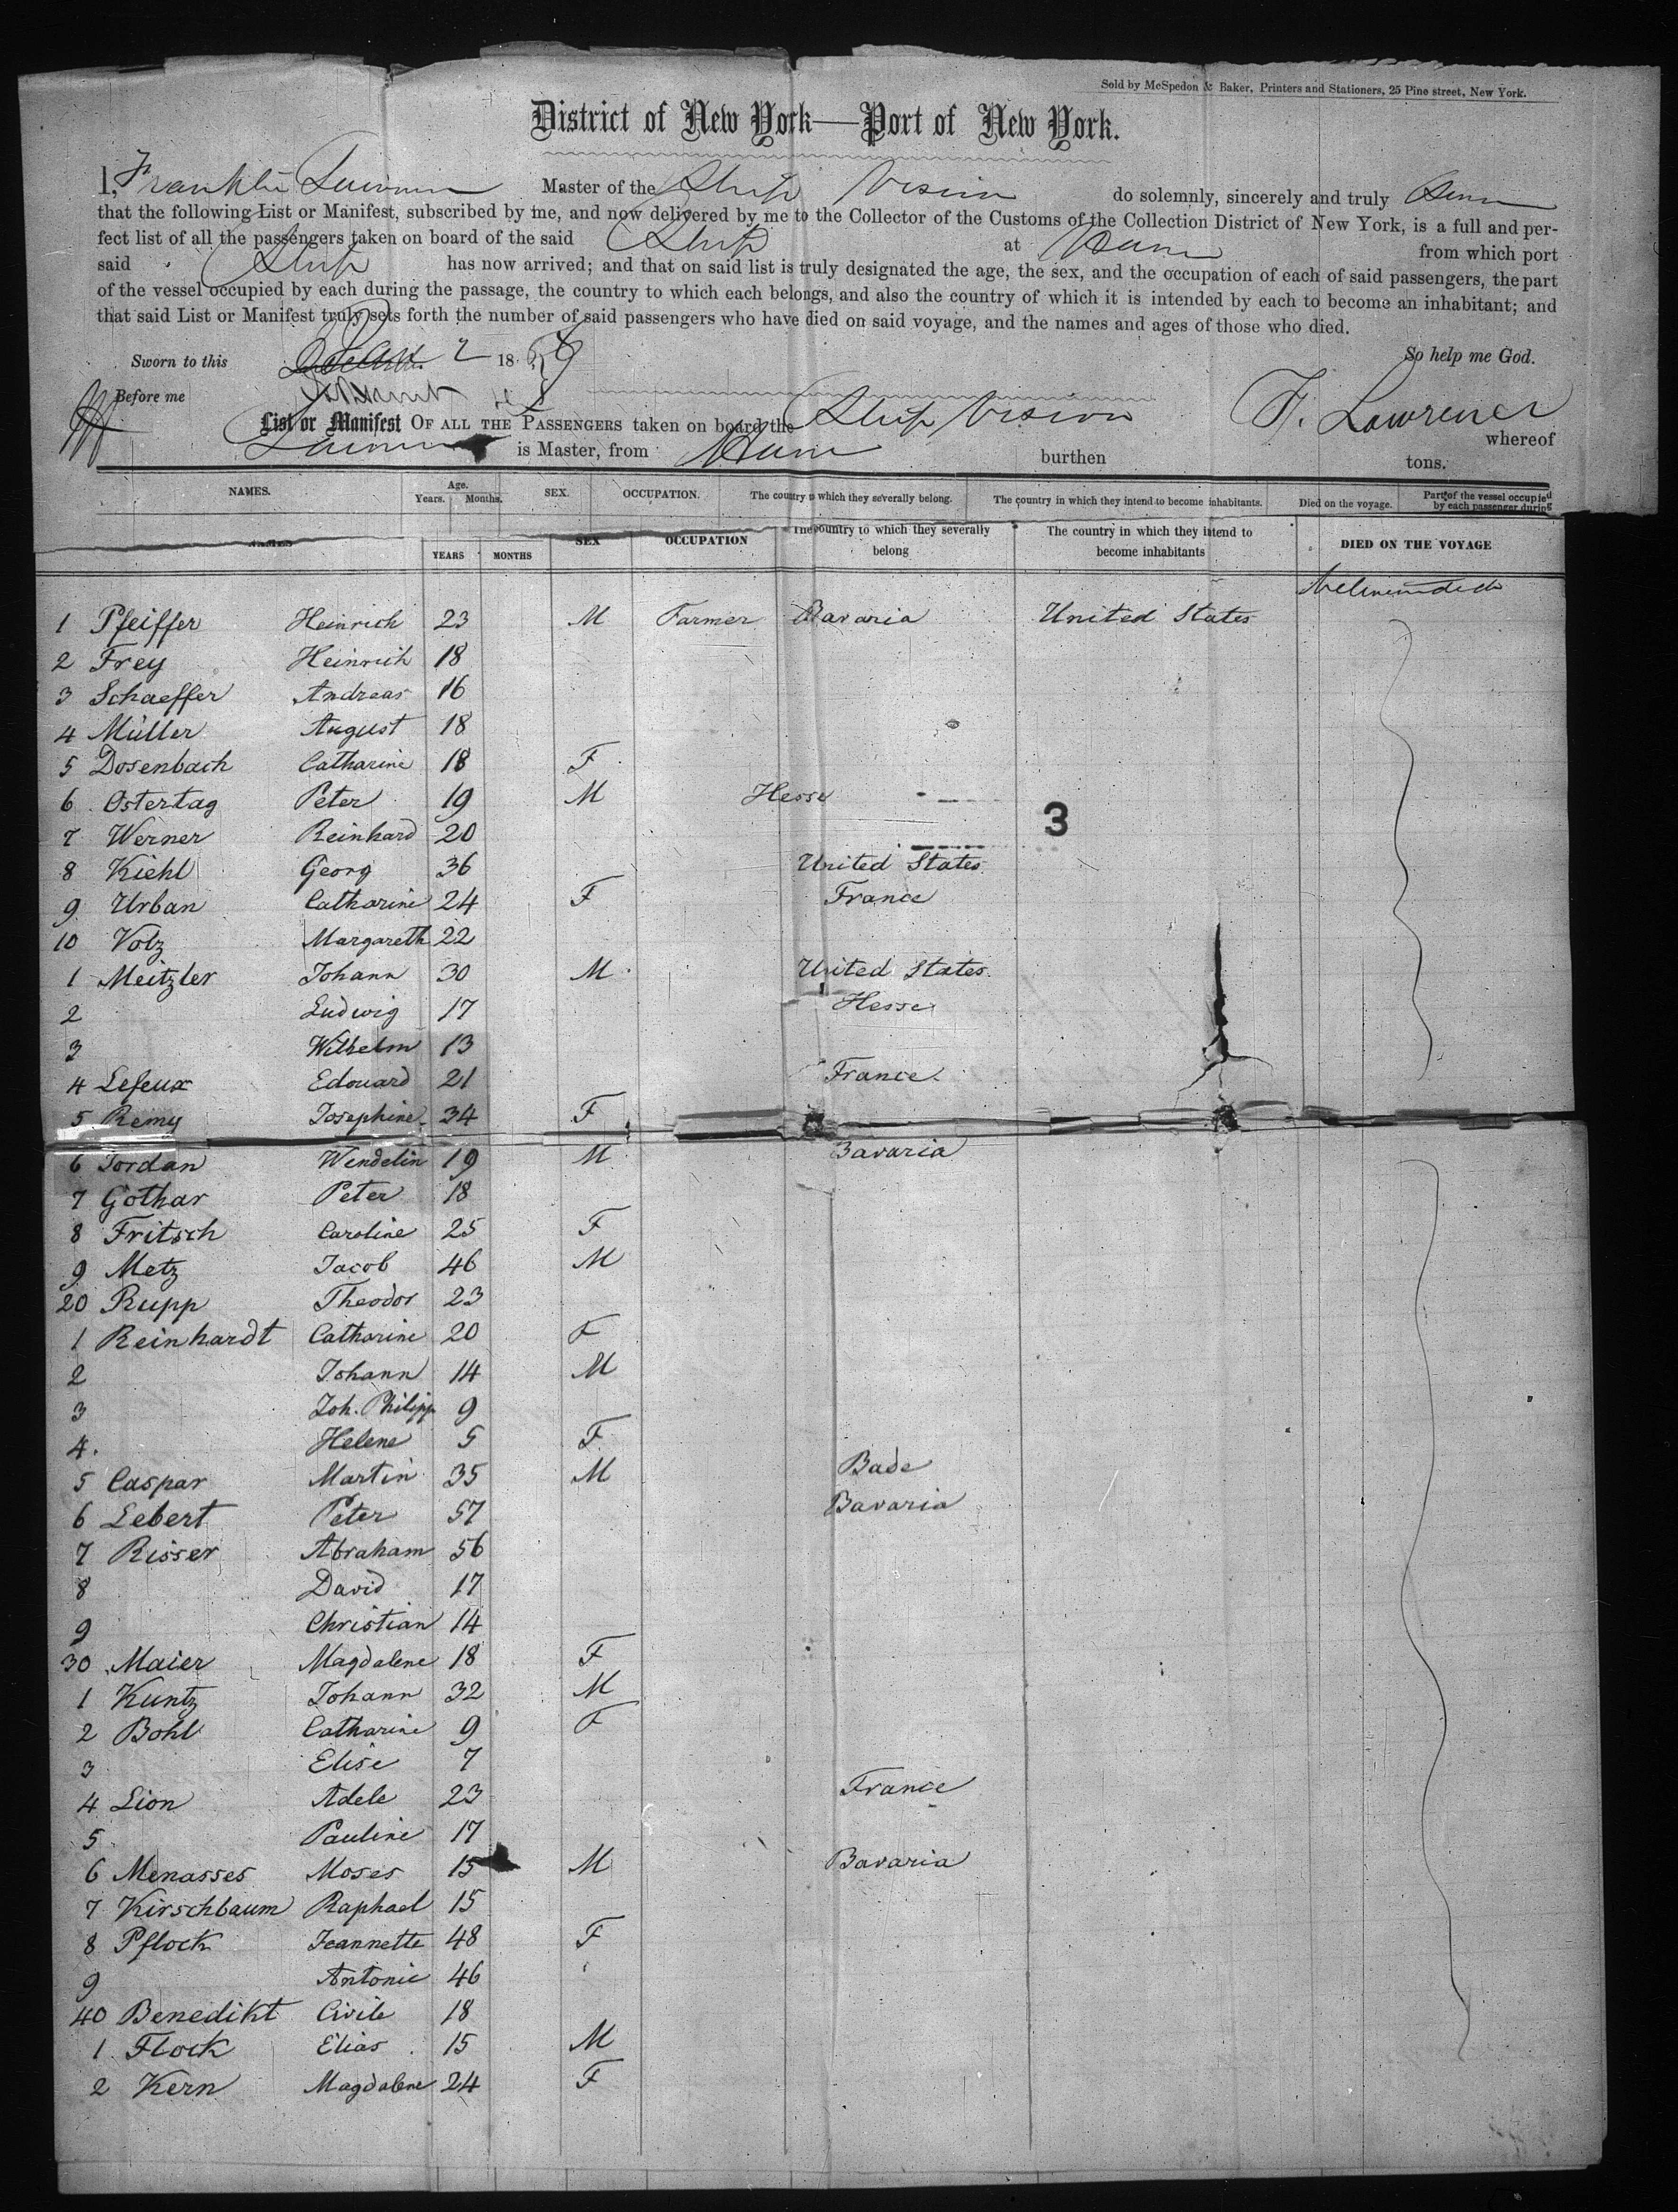 Sold by McSpedon & Baker, Printers and Stationers, 25 Pine street, New York.
District of New York—Port of New York.
I, Master of the Ship Vision do solemnly, sincerely and truly
that the following List or Manifest, subscribed by me, and now delivered by me to the Collector of the Customs of the Collection District of New York, is a full and per-
fect list of all the passengers taken on board of the said Ship at from which port
said Ship has now arrived; and that on said list is truly designated the age, the sex, and the occupation of each of said passengers, the part
of the vessel occupied by each during the passage, the country to which each belongs, and also the country of which it is intended by each to become an inhabitant; and
that said List or Manifest truly sets forth the number of said passengers who have died on said voyage, and the names and ages of those who died.
Sworn to this 2 18 So help me God.
Before me
List or Manifest OF ALL THE PASSENGERS taken on board the Ship Vision F. Lawrence whereof
is Master, from burthen tons.
NAMES. Age. Years. Months. SEX. OCCUPATION. The country to which they severally belong. The country in which they intend to become inhabitants. Died on the voyage. Part of the vessel occupied by each passenger during
NAMES YEARS MONTHS SEX OCCUPATION The country to which they severally belong The country in which they intend to become inhabitants DIED ON THE VOYAGE
1 Pfeiffer Heinrich 23 M Farmer Bavaria United States
2 Frey Heinrich 18
3 Schaeffer Andreas 16
4 Müller August 18
5 Dosenbach Catharine 18 F
6 Ostertag Peter 19 M Hesse
3
7 Werner Reinhard 20
8 Kiehl Georg 36 United States
9 Urban Catharine 24 F France
10 Volz Margareth 22
1 Meitzler Johann 30 M United States
2 Ludwig 17 Hesse
3 Wilhelm 13
4 Lefeux Edouard 21 France
5 Remy Josephine 34 F
6 Jordan Wendelin 19 M Bavaria
7 Gothar Peter 18
8 Fritsch Caroline 25 F
9 Metz Jacob 46 M
20 Rupp Theodor 23
1 Reinhardt Catharine 20 F
2 Johann 14 M
3 Joh. Philipp 9
4. Helene 5 F
5 Caspar Martin 35 M Bade
6 Lebert Peter 57 Bavaria
7 Risser Abraham 56
8 David 17
9 Christian 14
30 Maier Magdalene 18 F
1 Kuntz Johann 32 M
2 Bohl Catharine 9 F
3 Elise 7
4 Lion Adele 23 France
5 Pauline 17
6 Menasses Moses 15 M Bavaria
7 Kirschbaum Raphael 15
8 Pflock Jeannette 48 F
9 Antonie 46
40 Benedikt Civile 18
1 Flock Elias 15 M
2 Kern Magdalene 24 F